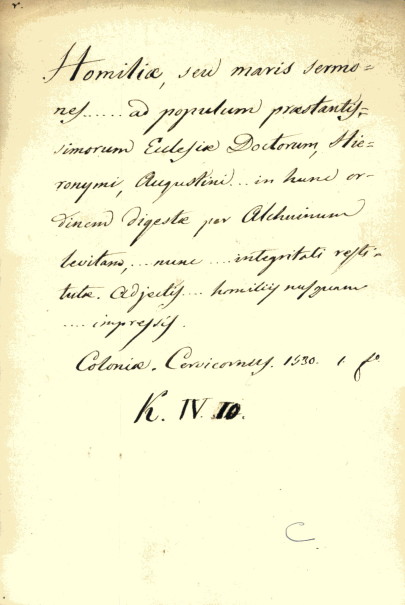 Homiliæ, seu maris sermo=
nes...... ad populum præstantis-
simorum Ecclesiæ Doctorum, Hie=
ronymi, Augustini... in hunc or-
dinem digestæ per Alchuinum
levitam,... nunc .... integritati resti-
tutæ. Adjectis.... homiliis nusquam
.... impressis.
Coloniæ. Cervicornus. 1530. 1. fo
K. IV. 10.
C